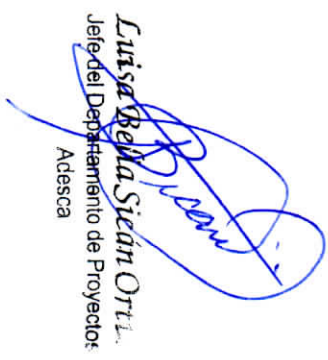 Luisa Bella Sicán Ortiz.
Jefe del Departamento de Proyectos
Adesca